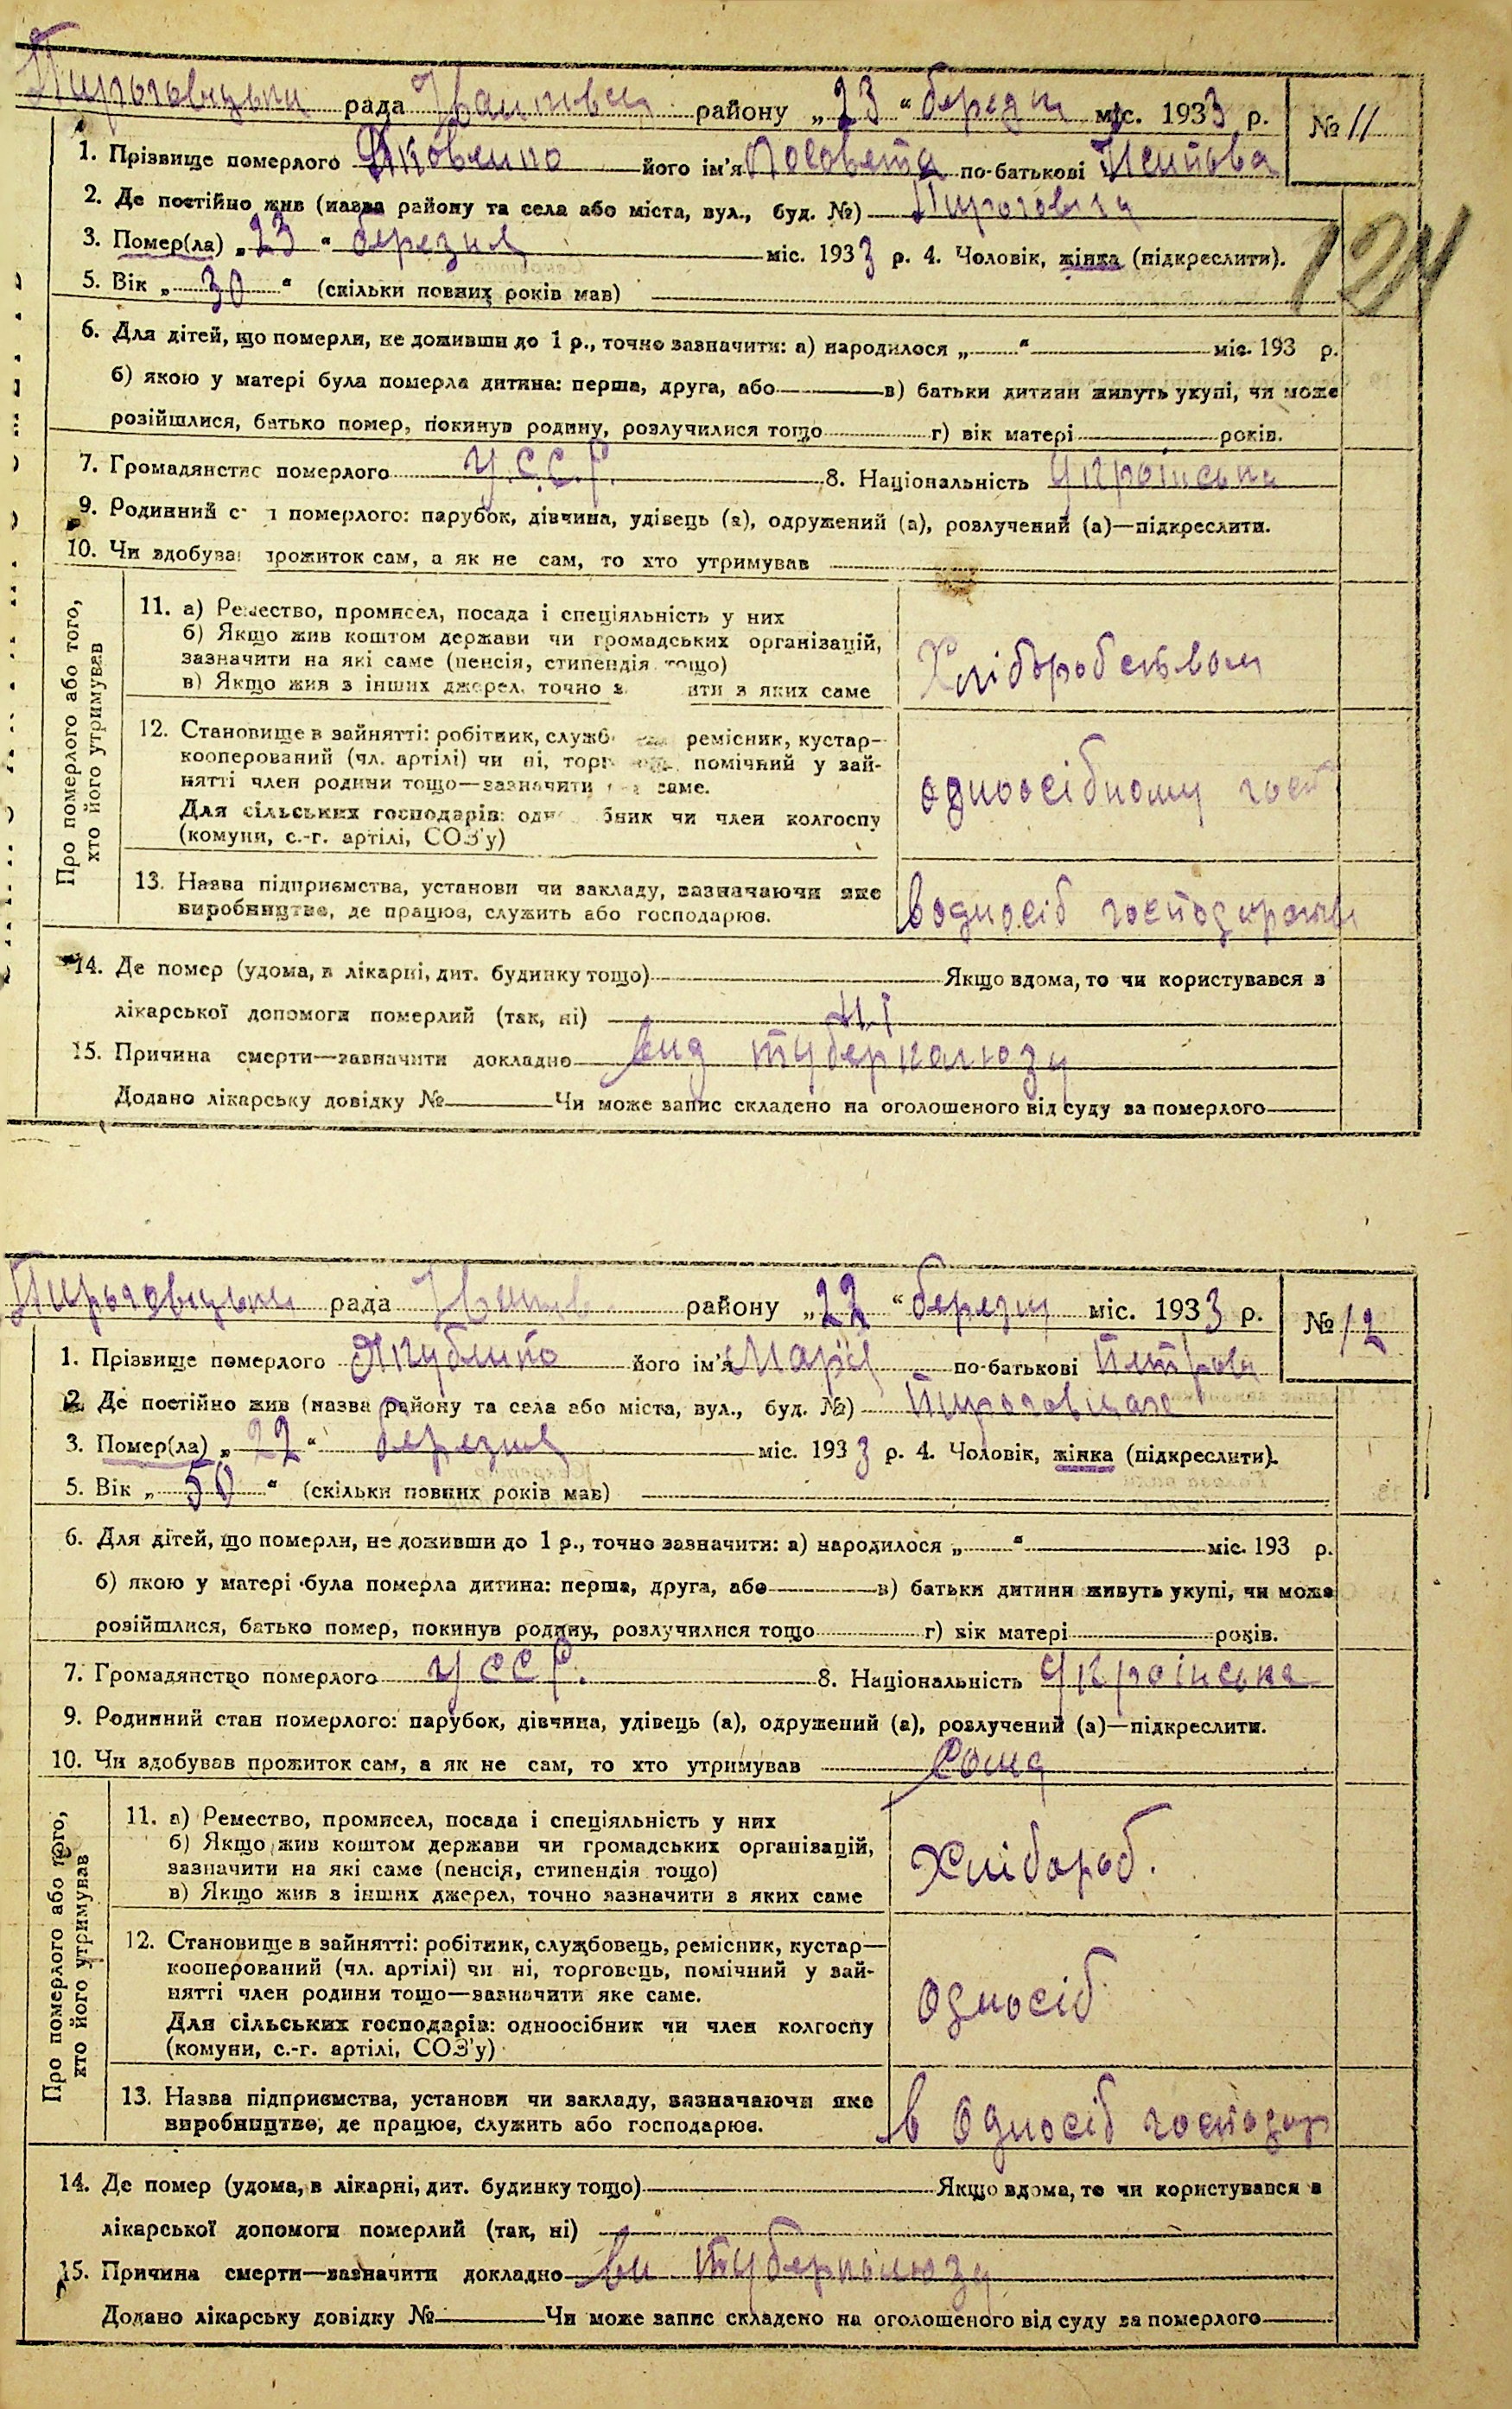 Пироговицька рада Іванківськ району „23“ березня міс. 1933 р. № 11
1. Прізвище померлого Яковенко його ім'я по-батькові
2. Де постійно жив (назва району та села або міста, вул., буд. №) Пироговичі
3. Помер(ла) „23“ березня міс. 1933 р. 4. Чоловік, жінка (підкреслити).
124
5. Вік „30“ (скільки повних років мав)
6. Для дітей, що померли, не доживши до 1 р., точно зазначити: а) народилося „ “ міс. 193 р.
б) якою у матері була померла дитина: перша, друга, або в) батьки дитини живуть укупі, чи може
розійшлися, батько помер, покинув родину, розлучилися тощо г) вік матері років.
7. Громадянство померлого У.С.С.Р. 8. Національність Українська
9. Родинний с н померлого: парубок, дівчина, удівець (а), одружений (а), розлучений (а)—підкреслити.
10. Чи здобував прожиток сам, а як не сам, то хто утримував
Про померлого або того, хто його утримував
11. а) Ремество, промисел, посада і спеціяльність у них
б) Якщо жив коштом держави чи громадських організацій,
зазначити на які саме (пенсія, стипендія тощо)
в) Якщо жив з інших джерел, точно з ити з яких саме
Хліборобством
12. Становище в зайнятті: робітник, служб ремісник, кустар—
кооперований (чл. артілі) чи ні, торг помічний у зай-
нятті член родини тощо—зазначити яке саме.
Для сільських господарів: одно бник чи член колгоспу
(комуни, с.-г. артілі, СОЗ'у)
одноосібному госп
13. Назва підприємства, установи чи закладу, зазначаючи яке
виробництво, де працює, служить або господарює.
в односіб господарстві
14. Де помер (удома, в лікарні, дит. будинку тощо) Якщо вдома, то чи користувався з
лікарської допомоги померлий (так, ні) Ні
15. Причина смерти—зазначити докладно вид туберкальозу
Додано лікарську довідку № Чи може запис складено на оголошеного від суду за померлого
Пироговицька рада Іванків району „22“ березня міс. 1933 р. № 12
1. Прізвище померлого його ім'я Марія по-батькові Петрова
2. Де постійно жив (назва району та села або міста, вул., буд. №)
3. Помер(ла) „22“ березня міс. 1933 р. 4. Чоловік, жінка (підкреслити).
5. Вік „50“ (скільки повних років мав)
6. Для дітей, що померли, не доживши до 1 р., точно зазначити: а) народилося „ “ міс. 193 р.
б) якою у матері була померла дитина: перша, друга, або в) батьки дитини живуть укупі, чи може
розійшлися, батько помер, покинув родину, розлучилися тощо г) вік матері років.
7. Громадянство померлого УССР. 8. Національність Українська
9. Родинний стан померлого: парубок, дівчина, удівець (а), одружений (а), розлучений (а)—підкреслити.
10. Чи здобував прожиток сам, а як не сам, то хто утримував Сама
Про померлого або того, хто його утримував
11. а) Ремество, промисел, посада і спеціяльність у них
б) Якщо жив коштом держави чи громадських організацій,
зазначити на які саме (пенсія, стипендія тощо)
в) Якщо жив з інших джерел, точно зазначити з яких саме
Хлібороб.
12. Становище в зайнятті: робітник, службовець, ремісник, кустар—
кооперований (чл. артілі) чи ні, торговець, помічний у зай-
нятті член родини тощо—зазначити яке саме.
Для сільських господарів: одноосібник чи член колгоспу
(комуни, с.-г. артілі, СОЗ'у)
односіб
13. Назва підприємства, установи чи закладу, зазначаючи яке
виробництво, де працює, служить або господарює.
в односіб господар
14. Де помер (удома, в лікарні, дит. будинку тощо) Якщо вдома, то чи користувався з
лікарської допомоги померлий (так, ні)
15. Причина смерти—зазначити докладно ви туберкальозу
Додано лікарську довідку № Чи може запис складено на оголошеного від суду за померлого